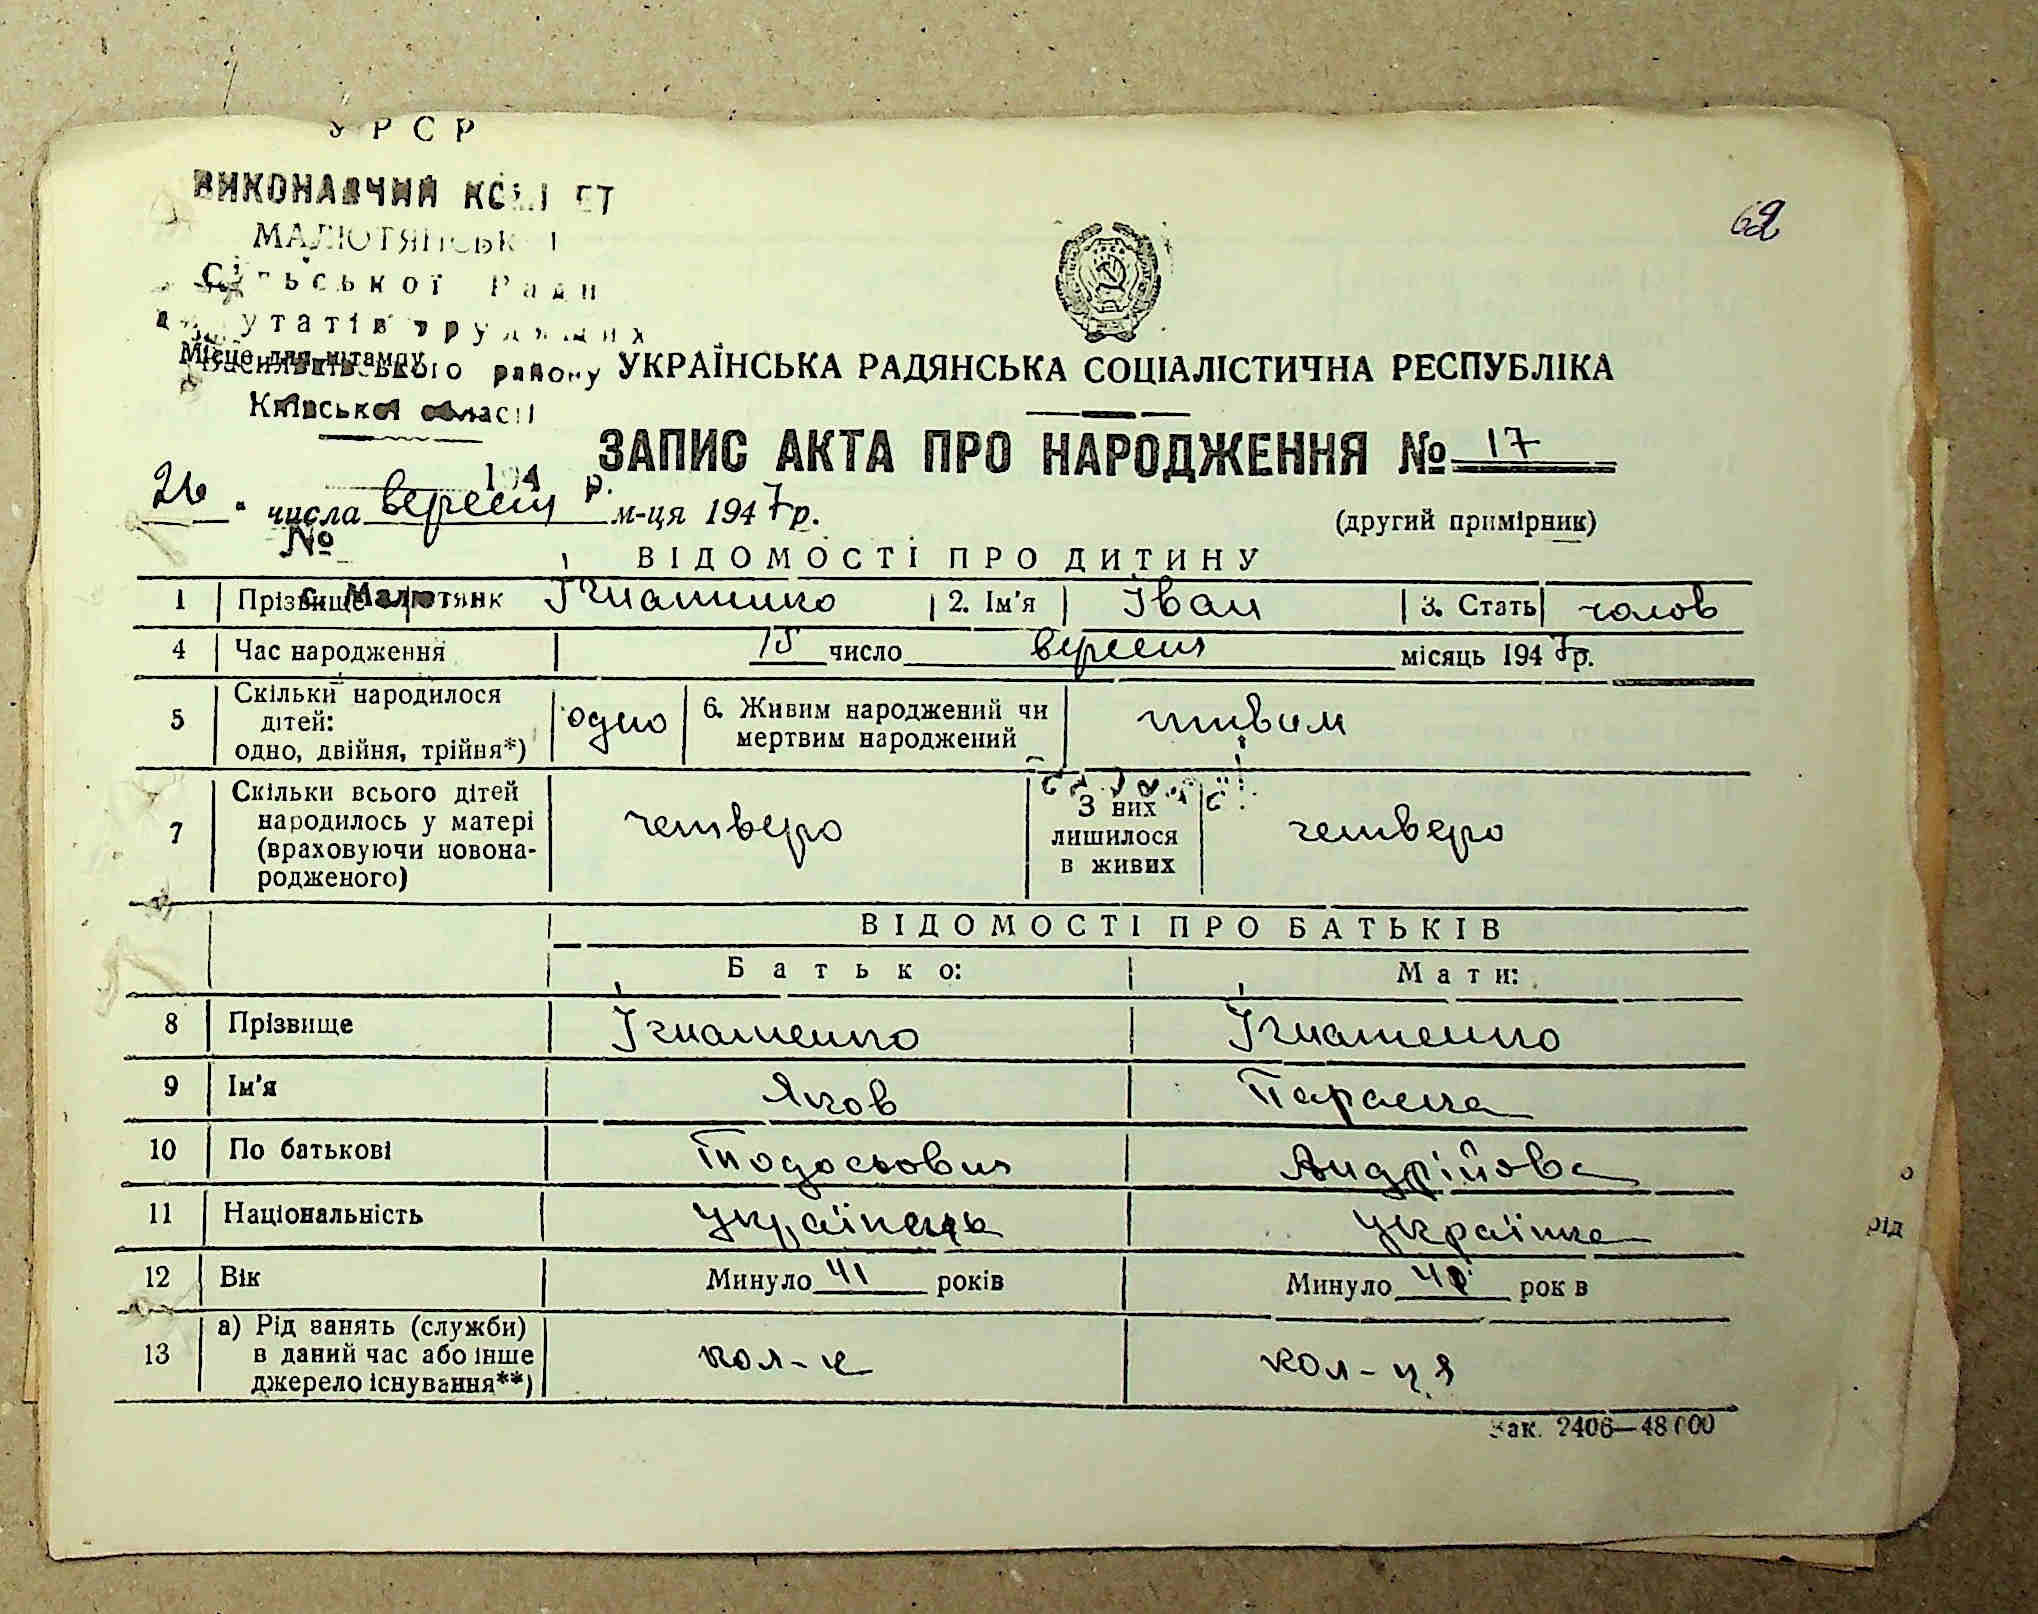 УРСР
ВИКОНАВЧИЙ КОМІТЕТ
МАЛЮТЯНСЬКОЇ
Сільської Ради
депутатів трудящих
Місце для штампу
Васильківського району
Київської області
62
УКРАЇНСЬКА РАДЯНСЬКА СОЦІАЛІСТИЧНА РЕСПУБЛІКА
ЗАПИС АКТА ПРО НАРОДЖЕННЯ № 17
194 р.
26 " числа вересня м-ця 1947 р.
(другий примірник)
№
ВІДОМОСТІ ПРО ДИТИНУ
с. Малютянк
1 Прізвище Ігнатенко 2. Ім'я Іван 3. Стать чолов
4 Час народження 15 число вересня місяць 1947 р.
5 Скільки народилося дітей: одно, двійня, трійня*) одно 6. Живим народжений чи мертвим народжений живим
7 Скільки всього дітей народилось у матері (враховуючи новонародженого) четверо З них лишилося в живих четверо
ВІДОМОСТІ ПРО БАТЬКІВ
Батько: Мати:
8 Прізвище Ігнатенко Ігнатенко
9 Ім'я Яков Параска
10 По батькові Тодосьович Андрійова
11 Національність українець українка
12 Вік Минуло 41 років Минуло рок в
13 а) Рід занять (служби) в даний час або інше джерело існування**) кол-к кол-ця
Зак. 2406—48000
рід